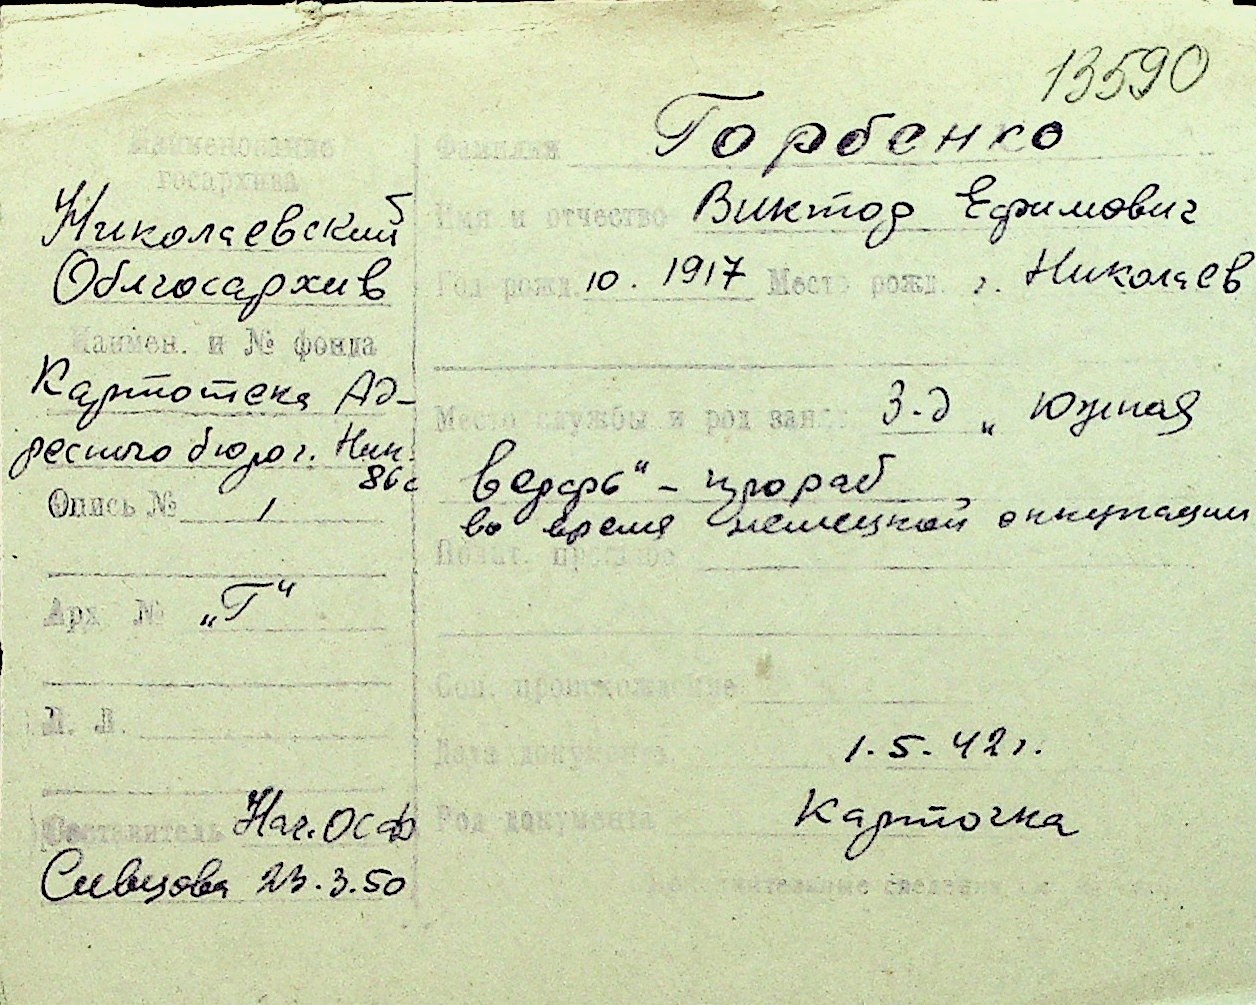 13590
Наименование
госархива
Николаевский
Облгосархив
Наимен. и № фонда
Картотека Ад-
ресного бюро г. Ник.
86с
Опись № 1
Арх № „Г“
Л. Л.
Составитель Нач. ОСФ
Сивцова 23.3.50
Фамилия Горбенко
Имя и отчество Виктор Ефимович
Год рожд. 10. 1917 Место рожд. г. Николаев
Место службы и род зан. З-д „Южная
верфь“ – прораб
во время немецкой оккупации
Полит. прошлое
Соц. происхождение
Дата документа 1.5.42 г.
Род документа Карточка
Дополнительные сведения